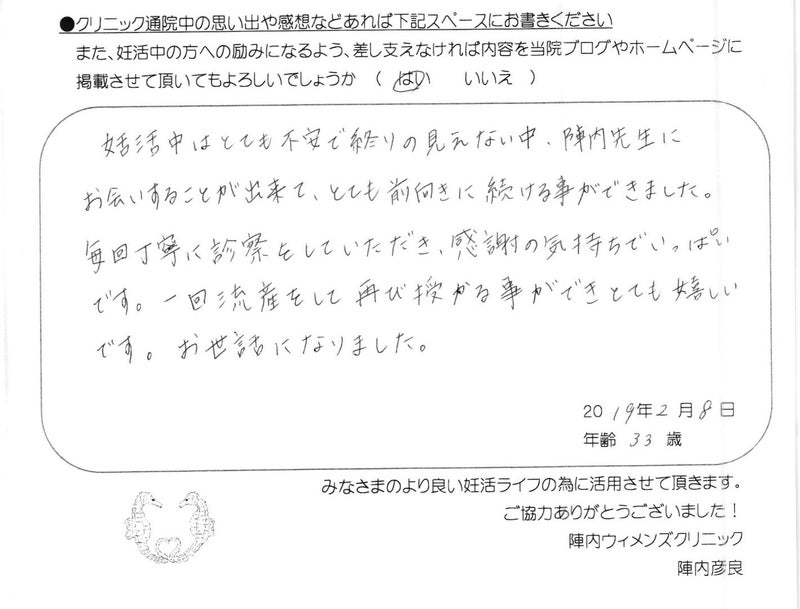 ●クリニック通院中の思い出や感想などあれば下記スペースにお書きください
また、妊活中の方への励みになるよう、差し支えなければ内容を当院ブログやホームページに
掲載させて頂いてもよろしいでしょうか （ はい いいえ ）
妊活中はとても不安で終りの見えない中、陣内先生に
お会いすることが出来て、とても前向きに続ける事ができました。
毎回丁寧に診察をしていただき、感謝の気持ちでいっぱい
です。一回流産をして再び授かる事ができとても嬉しい
です。お世話になりました。
2019年2月8日
年齢 33 歳
みなさまのより良い妊活ライフの為に活用させて頂きます。
ご協力ありがとうございました！
陣内ウィメンズクリニック
陣内彦良